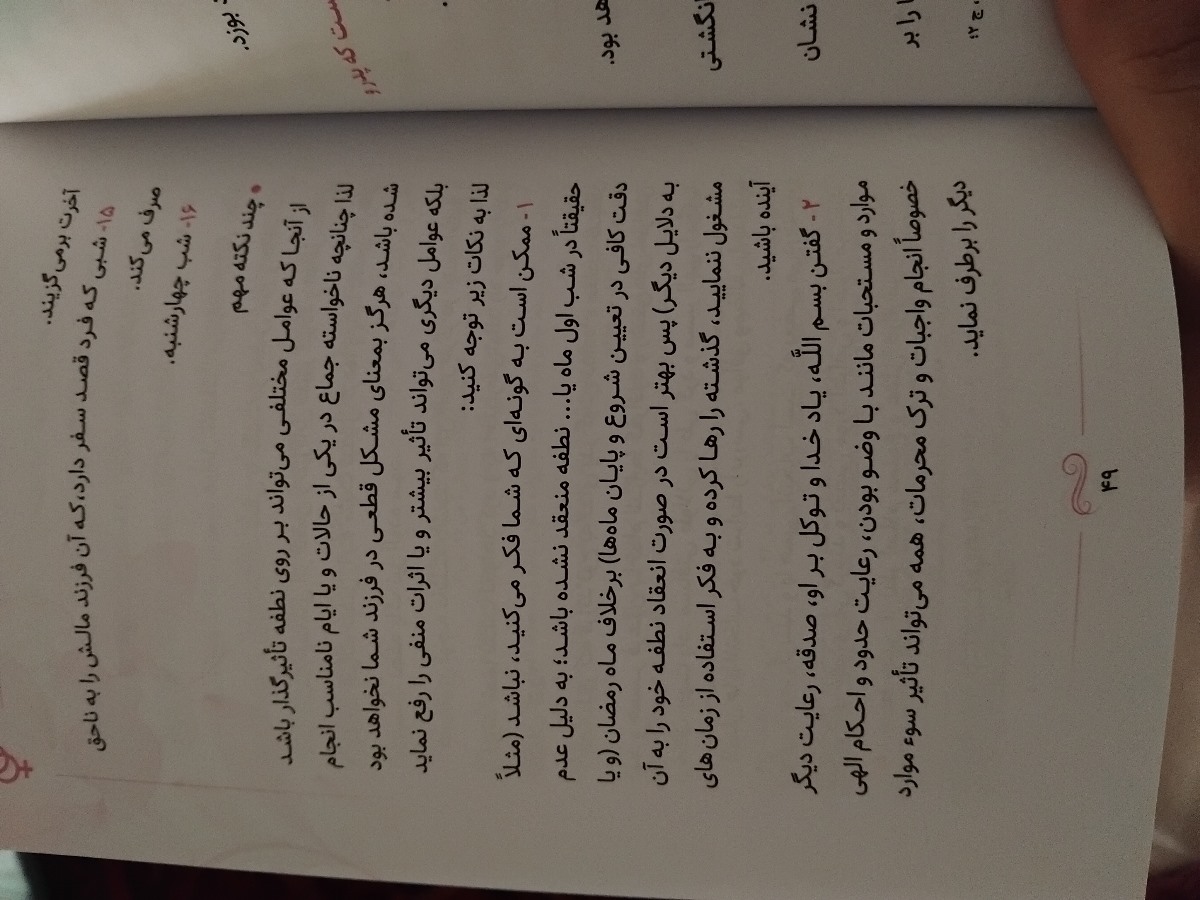 آخرت برمی‌گزیند.
۱۵- شبی که فرد قصد سفر دارد، که آن فرزند مالش را به ناحق
صرف می‌کند.
۱۶- شب چهارشنبه.
• چند نکته مهم
از آنجا که عوامل مختلفی می‌تواند بر روی نطفه تأثیرگذار باشد
لذا چنانچه ناخواسته جماع در یکی از حالات و یا ایام نامناسب انجام
شده باشد، هرگز بمعنای مشکل قطعی در فرزند شما نخواهد بود
بلکه عوامل دیگری می‌تواند تأثیر بیشتر و یا اثرات منفی را رفع نماید
لذا به نکات زیر توجه کنید:
۱- ممکن است به گونه‌ای که شما فکر می‌کنید، نباشد (مثلاً
حقیقتاً در شب اول ماه یا... نطفه منعقد نشده باشد؛ به دلیل عدم
دقت کافی در تعیین شروع و پایان ماه‌ها) برخلاف ماه رمضان (و یا
به دلایل دیگر) پس بهتر است در صورت انعقاد نطفه خود را به آن
مشغول ننمایید، گذشته را رها کرده و به فکر استفاده از زمان‌های
آینده باشید.
۲- گفتن بسم الله، یاد خدا و توکل بر او، صدقه، رعایت دیگر
موارد و مستحبات مانند با وضو بودن، رعایت حدود و احکام الهی
خصوصاً انجام واجبات و ترک محرمات، همه می‌تواند تأثیر سوء موارد
دیگر را برطرف نماید.
۴۹
بوزد.
ست که پدر و
هد بود.
نگشتی
نشان
ا را بر
ج ۲؛